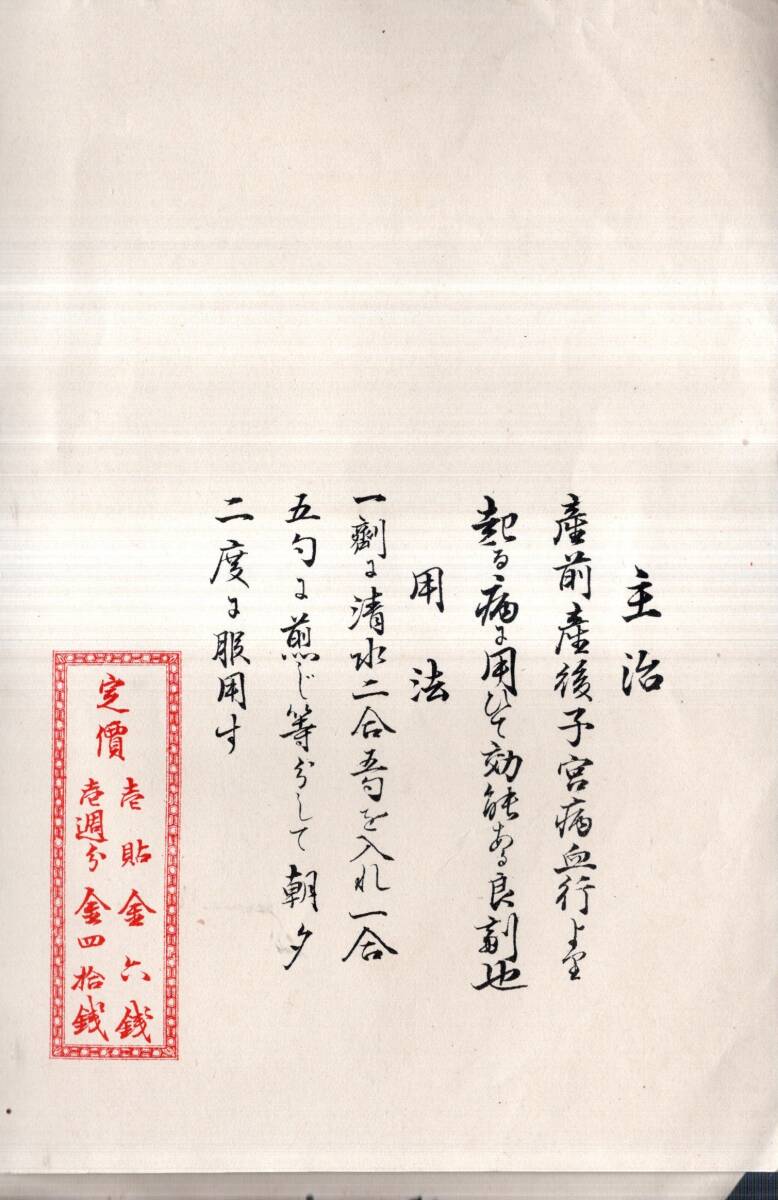 主治
産前産後子宮病血行より
起る病に用ひて効能ある良剤也
用法
一劑に清水二合五勺を入れ一合
五勺に煎じ等分して朝夕
二度に服用す
定價
壱貼金六銭
壱週分金四拾銭